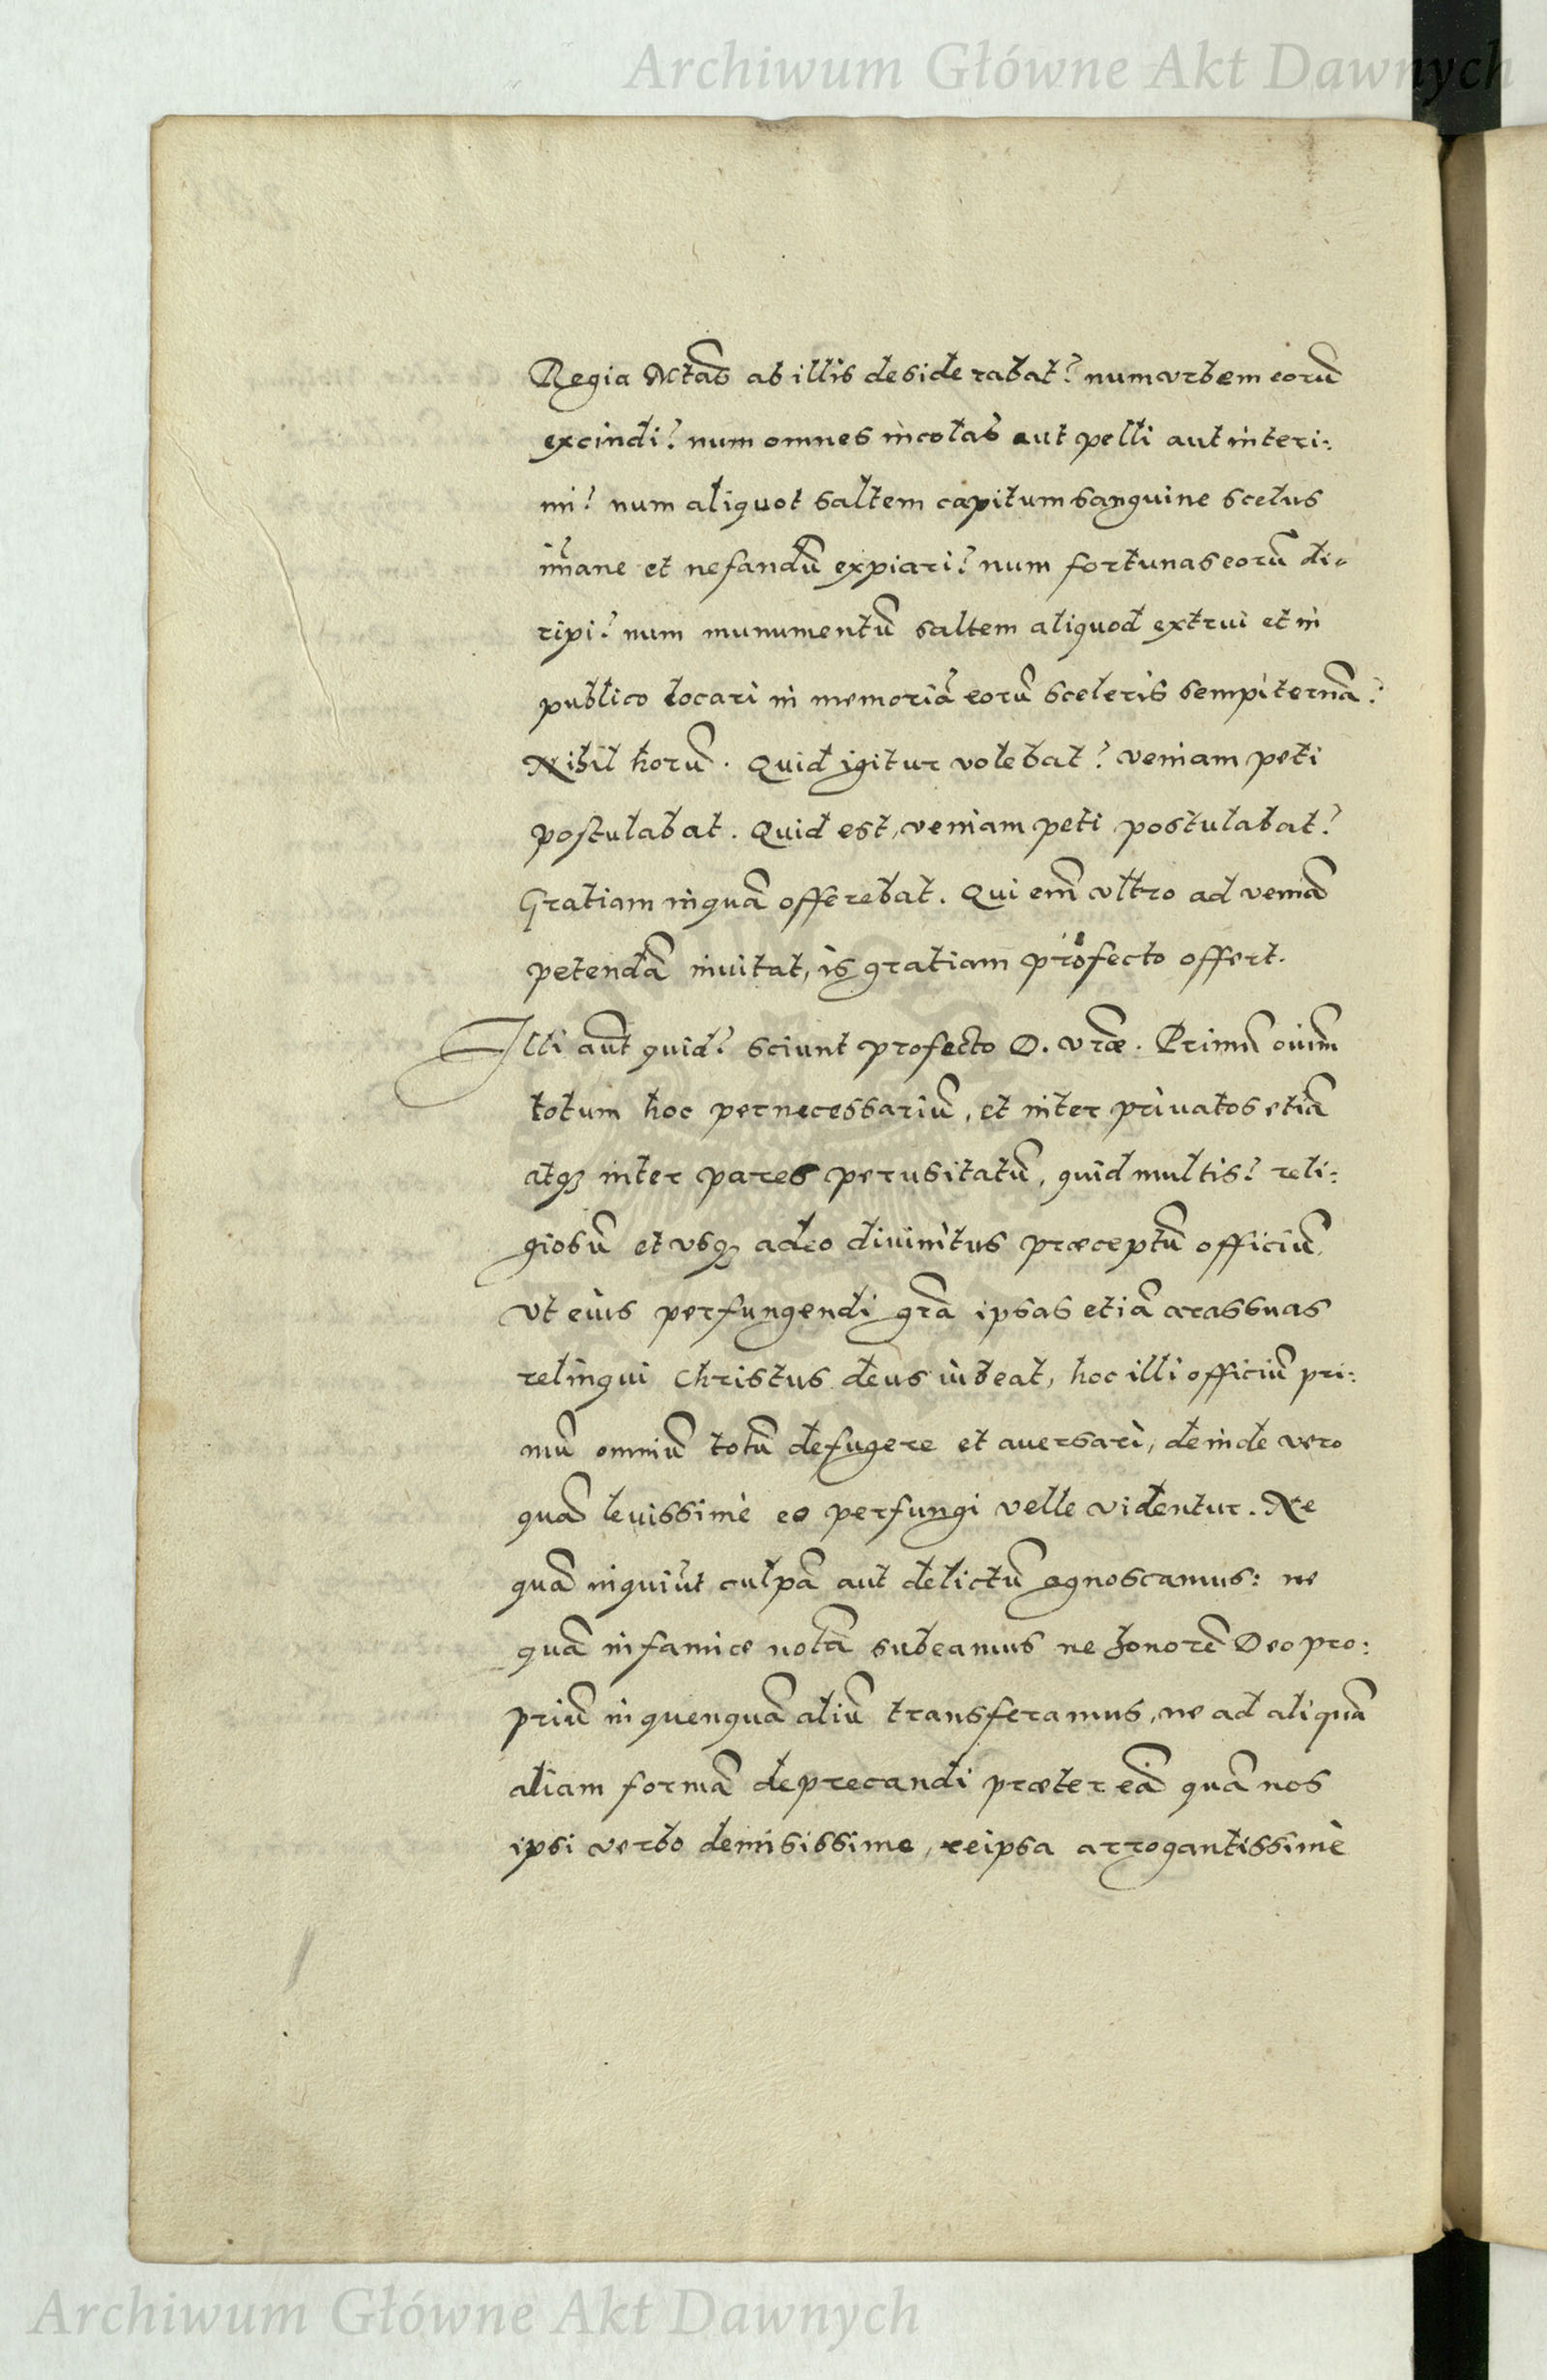 Archiwum Główne Akt Dawnych
Regia Mtãs ab illis desiderabat? num vrbem eorũ
excindi? num omnes incolas aut pelli aut interi:
mi? num aliquot saltem capitum sanguine scelus
im̃ane et nefandũ expiari? num fortunas eorũ di:
ripi? num munumentũ saltem aliquod extrui et in
publico locari in memoriã eorũ sceleris sempiternã?
Nihil horũ. Quid igitur volebat? veniam peti
postulabat. Quid est, veniam peti postulabat?
Gratiam inquã offerebat. Qui em̃ vltro ad veniã
petendã inuitat, is gratiam profecto offert.
Illi aũt quid? sciunt profecto D. vrãe. Primũ oiũm
totum hoc pernecessariũ, et inter priuatos etiã
atqȝ inter pares perusitatũ, quid multis? reli:
giosũ et vsqȝ adeo diuinitus præceptũ officiũ,
vt eius perfungendi grã ipsas etiã aras suas
relinqui Christus deus iubeat, hoc illi officiũ pri:
mũ omniũ totũ defugere et auersari, deinde vero
quã leuissimè eo perfungi velle videntur. Ne
quã inquiũt culpã aut delictũ agnoscamus: ne
quã infamiæ notã subeamus ne honorẽ Deo pro:
priũ in quenquã aliũ transferamus, ne ad aliquã
aliam formã deprecandi præter eã quã nos
ipsi verbo demisissime, reipsa arrogantissimè
Archiwum Główne Akt Dawnych